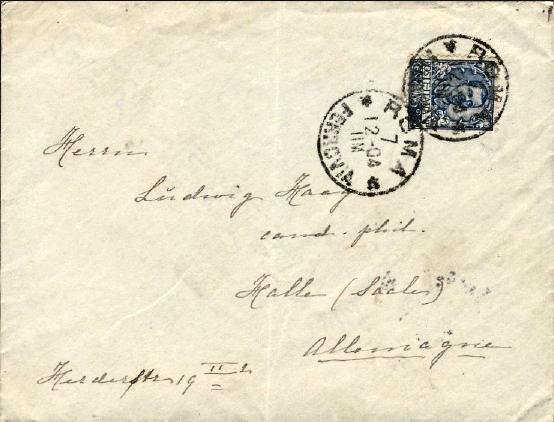 ROMA
FERROVIA
7
12-04
11M
ROMA
Herrn
Ludwig Haag
cand. phil.
Halle (Saale)
Allemagne
Herderstr 19 II